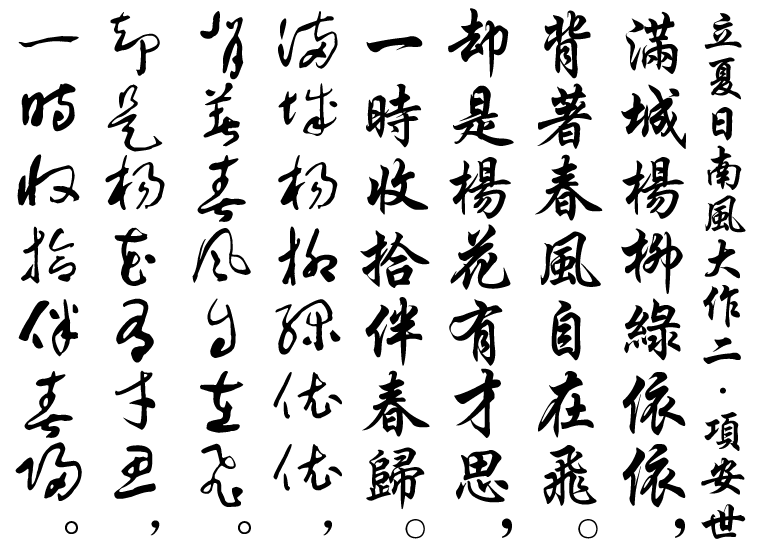 立夏日南風大作二·項安世
滿城楊柳綠依依，
背著春風自在飛。
却是楊花有才思，
一時收拾伴春歸。
滿城楊柳綠依依，
背著春風自在飛。
却是楊花有才思，
一時收拾伴春歸。